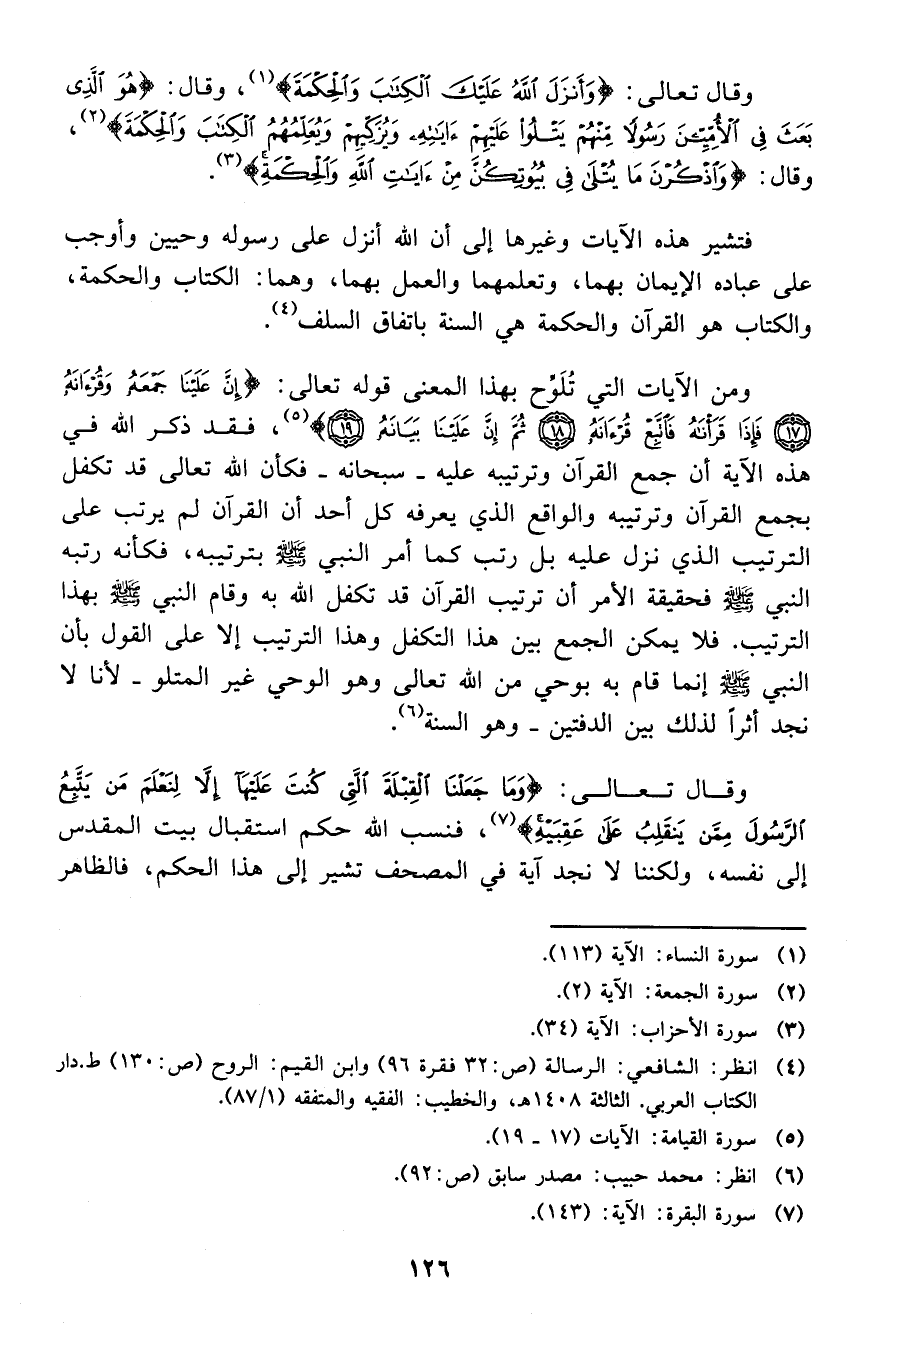 وقال تعالى: ﴿وَأَنزَلَ ٱللَّهُ عَلَيْكَ ٱلْكِتَٰبَ وَٱلْحِكْمَةَ﴾(١)، وقال: ﴿هُوَ ٱلَّذِى
بَعَثَ فِى ٱلْأُمِّيِّـۧنَ رَسُولًا مِّنْهُمْ يَتْلُوا۟ عَلَيْهِمْ ءَايَٰتِهِۦ وَيُزَكِّيهِمْ وَيُعَلِّمُهُمُ ٱلْكِتَٰبَ وَٱلْحِكْمَةَ﴾(٢)،
وقال: ﴿وَٱذْكُرْنَ مَا يُتْلَىٰ فِى بُيُوتِكُنَّ مِنْ ءَايَٰتِ ٱللَّهِ وَٱلْحِكْمَةِۚ﴾(٣).
فتشير هذه الآيات وغيرها إلى أن الله أنزل على رسوله وحيين وأوجب
على عباده الإيمان بهما، وتعلمهما والعمل بهما، وهما: الكتاب والحكمة،
والكتاب هو القرآن والحكمة هي السنة باتفاق السلف(٤).
ومن الآيات التي تُلَوِّح بهذا المعنى قوله تعالى: ﴿إِنَّ عَلَيْنَا جَمْعَهُۥ وَقُرْءَانَهُۥ
١٧ فَإِذَا قَرَأْنَٰهُ فَٱتَّبِعْ قُرْءَانَهُۥ ١٨ ثُمَّ إِنَّ عَلَيْنَا بَيَانَهُۥ ١٩﴾(٥)، فـقـد ذكـر الله فـي
هذه الآية أن جمع القرآن وترتيبه عليه ـ سبحانه ـ فكأن الله تعالى قد تكفل
بجمع القرآن وترتيبه والواقع الذي يعرفه كل أحد أن القرآن لم يرتب على
الترتيب الذي نزل عليه بل رتب كما أمر النبي ﷺ بترتيبه، فكأنه رتبه
النبي ﷺ فحقيقة الأمر أن ترتيب القرآن قد تكفل الله به وقام النبي ﷺ بهذا
الترتيب. فلا يمكن الجمع بين هذا التكفل وهذا الترتيب إلا على القول بأن
النبي ﷺ إنما قام به بوحي من الله تعالى وهو الوحي غير المتلو ـ لأنا لا
نجد أثراً لذلك بين الدفتين ـ وهو السنة(٦).
وقـال تـعـالـى: ﴿وَمَا جَعَلْنَا ٱلْقِبْلَةَ ٱلَّتِى كُنتَ عَلَيْهَآ إِلَّا لِنَعْلَمَ مَن يَتَّبِعُ
ٱلرَّسُولَ مِمَّن يَنقَلِبُ عَلَىٰ عَقِبَيْهِۚ﴾(٧)، فنسب الله حكم استقبال بيت المقدس
إلى نفسه، ولكننا لا نجد آية في المصحف تشير إلى هذا الحكم، فالظاهر
(١) سورة النساء: الآية (١١٣).
(٢) سورة الجمعة: الآية (٢).
(٣) سورة الأحزاب: الآية (٣٤).
(٤) انظر: الشافعي: الرسالة (ص: ٣٢ فقرة ٩٦) وابن القيم: الروح (ص: ١٣٠) ط.دار
الكتاب العربي. الثالثة ١٤٠٨هـ، والخطيب: الفقيه والمتفقه (٨٧/١).
(٥) سورة القيامة: الآيات (١٧ ـ ١٩).
(٦) انظر: محمد حبيب: مصدر سابق (ص: ٩٢).
(٧) سورة البقرة: الآية: (١٤٣).
١٢٦